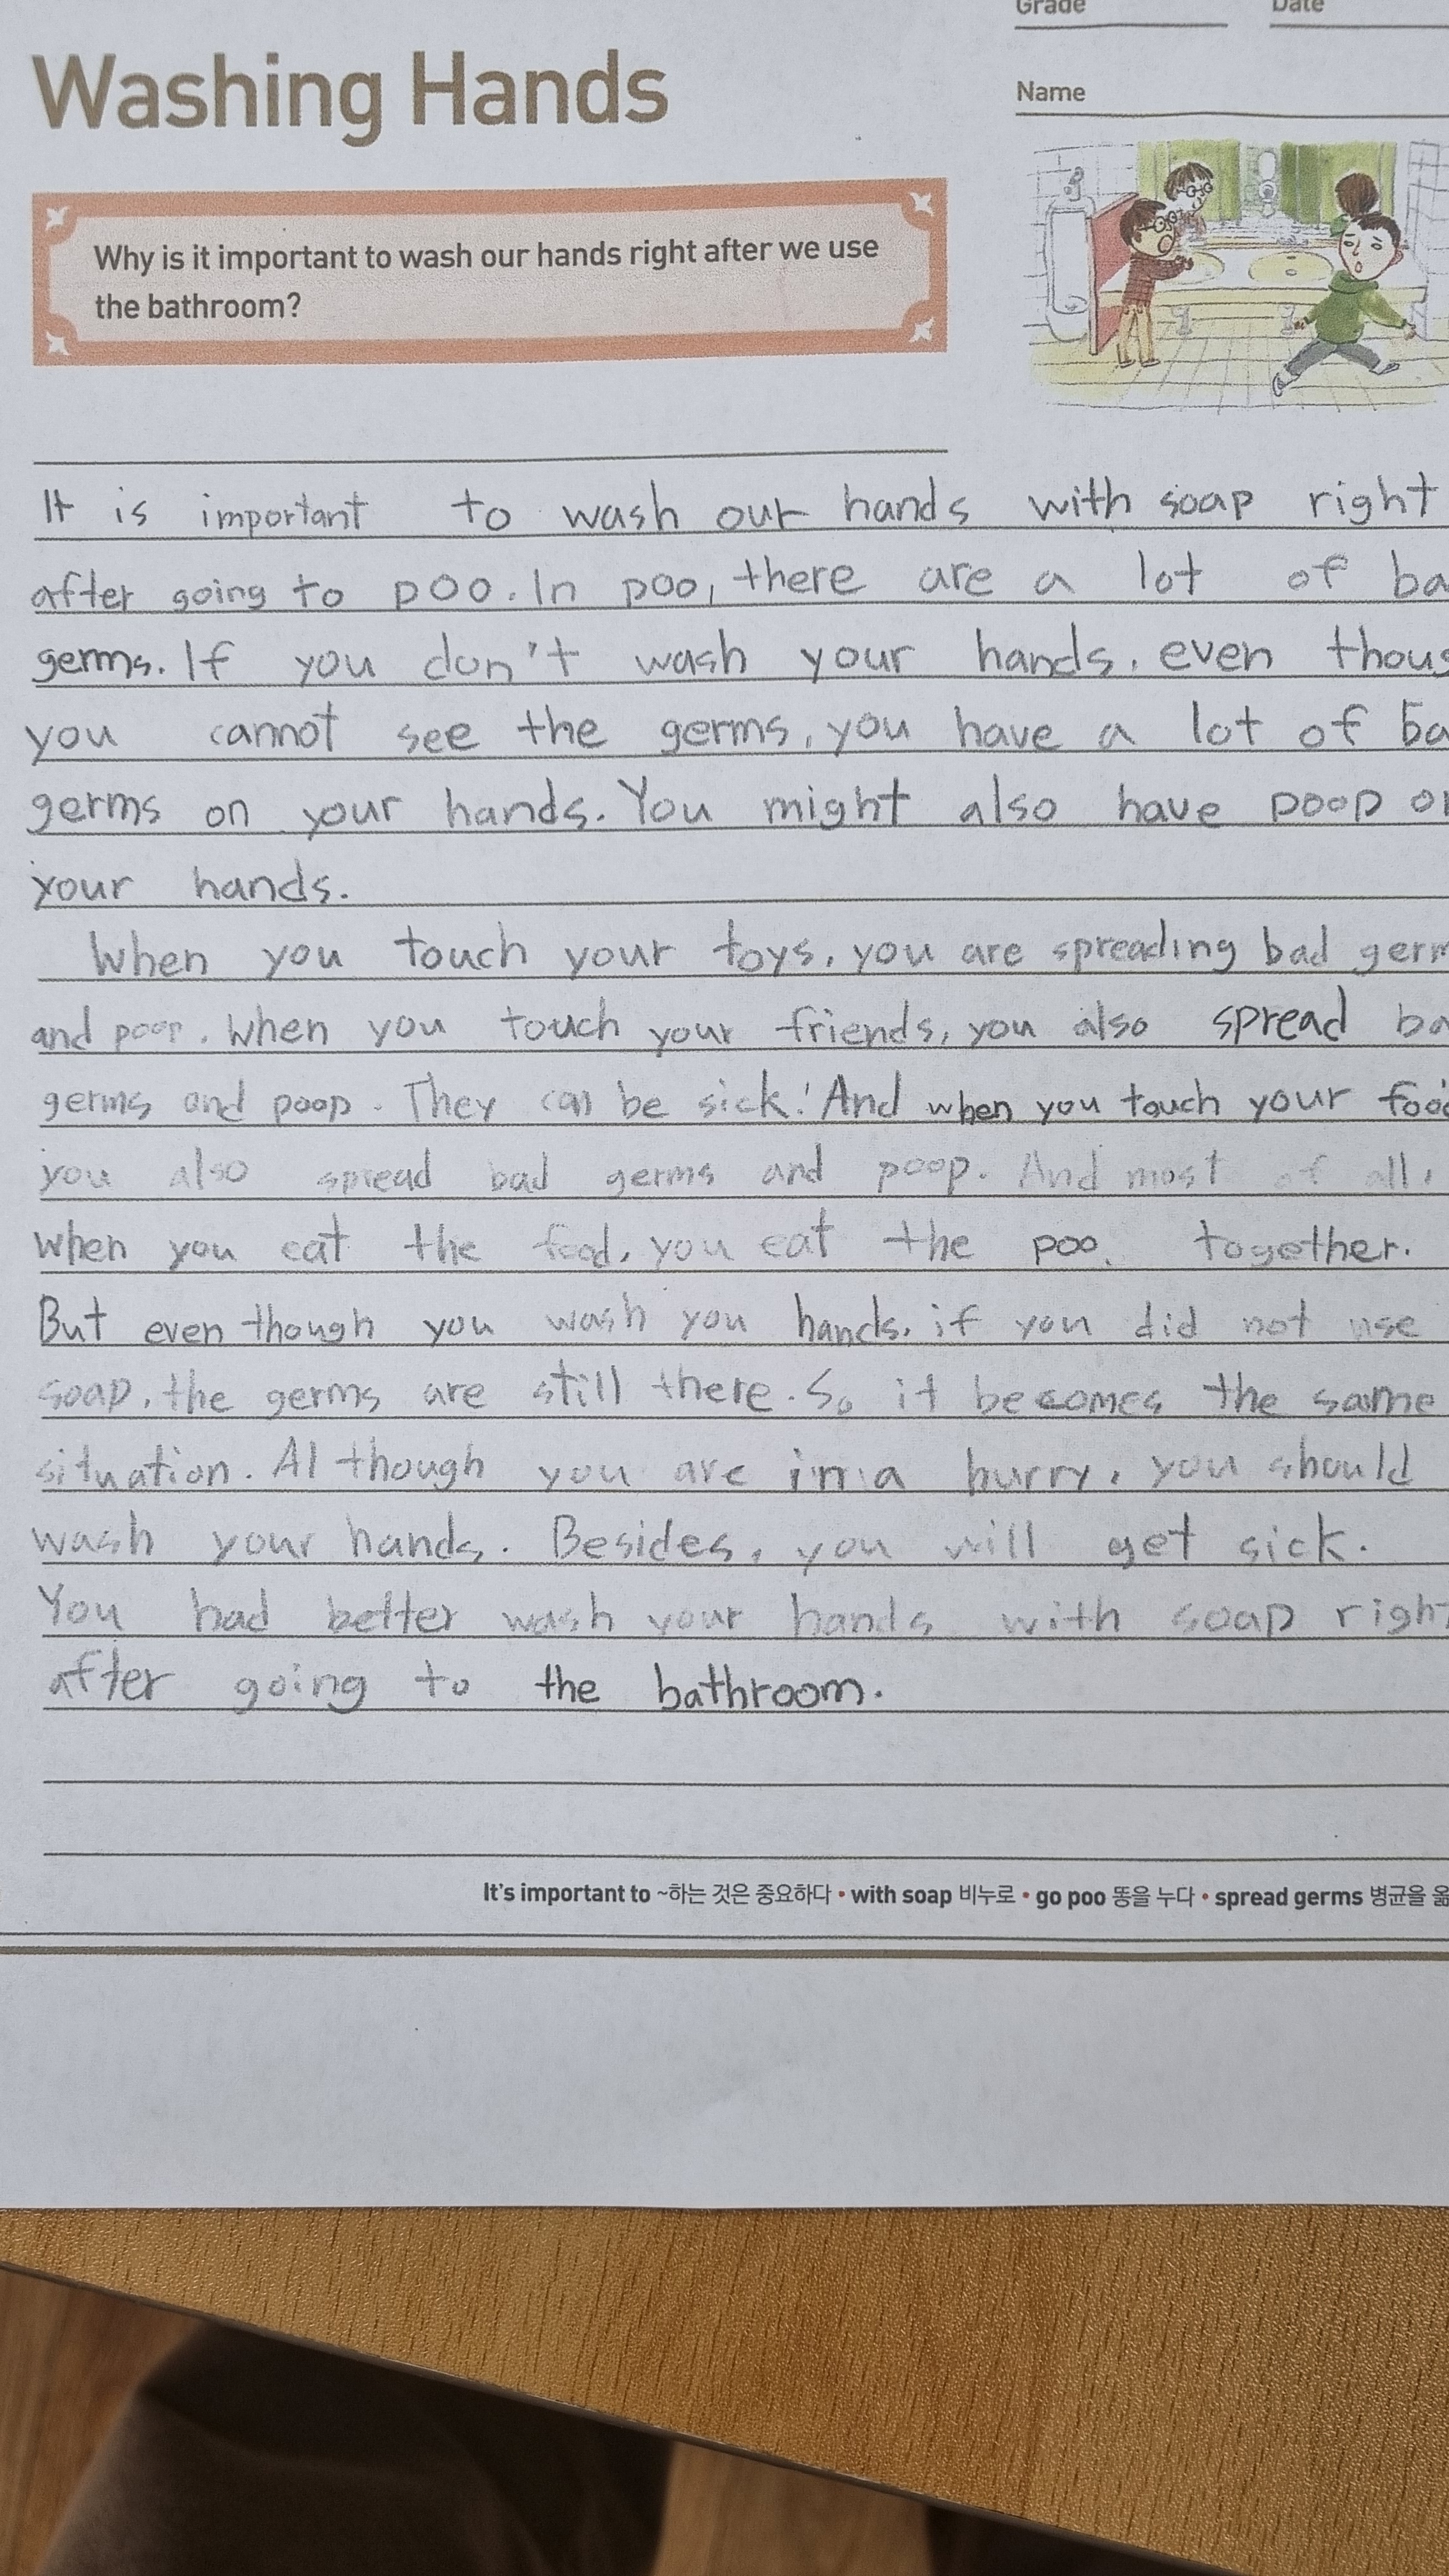 Grade Date
Washing Hands
Name
Why is it important to wash our hands right after we use
the bathroom?
It is important to wash our hands with soap right
after going to poo. In poo, there are a lot of ba
germs. If you don't wash your hands, even thoug
you cannot see the germs, you have a lot of ba
germs on your hands. You might also have poop on
your hands.
When you touch your toys, you are spreading bad germ
and poop. When you touch your friends, you also spread ba
germs and poop. They can be sick! And when you touch your food
you also spread bad germs and poop. And most of all,
when you eat the food, you eat the poo together.
But even though you wash you hands, if you did not use
soap, the germs are still there. So it becomes the same
situation. Although you are in a hurry, you should
wash your hands. Besides, you will get sick.
You had better wash your hands with soap right
after going to the bathroom.
It's important to ~하는 것은 중요하다 • with soap 비누로 • go poo 똥을 누다 • spread germs 병균을 옮